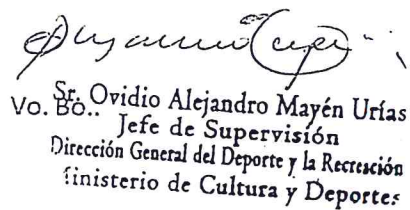 Vo. Bo.. Sr. Ovidio Alejandro Mayén Urías
Jefe de Supervisión
Dirección General del Deporte y la Recreación
Ministerio de Cultura y Deportes